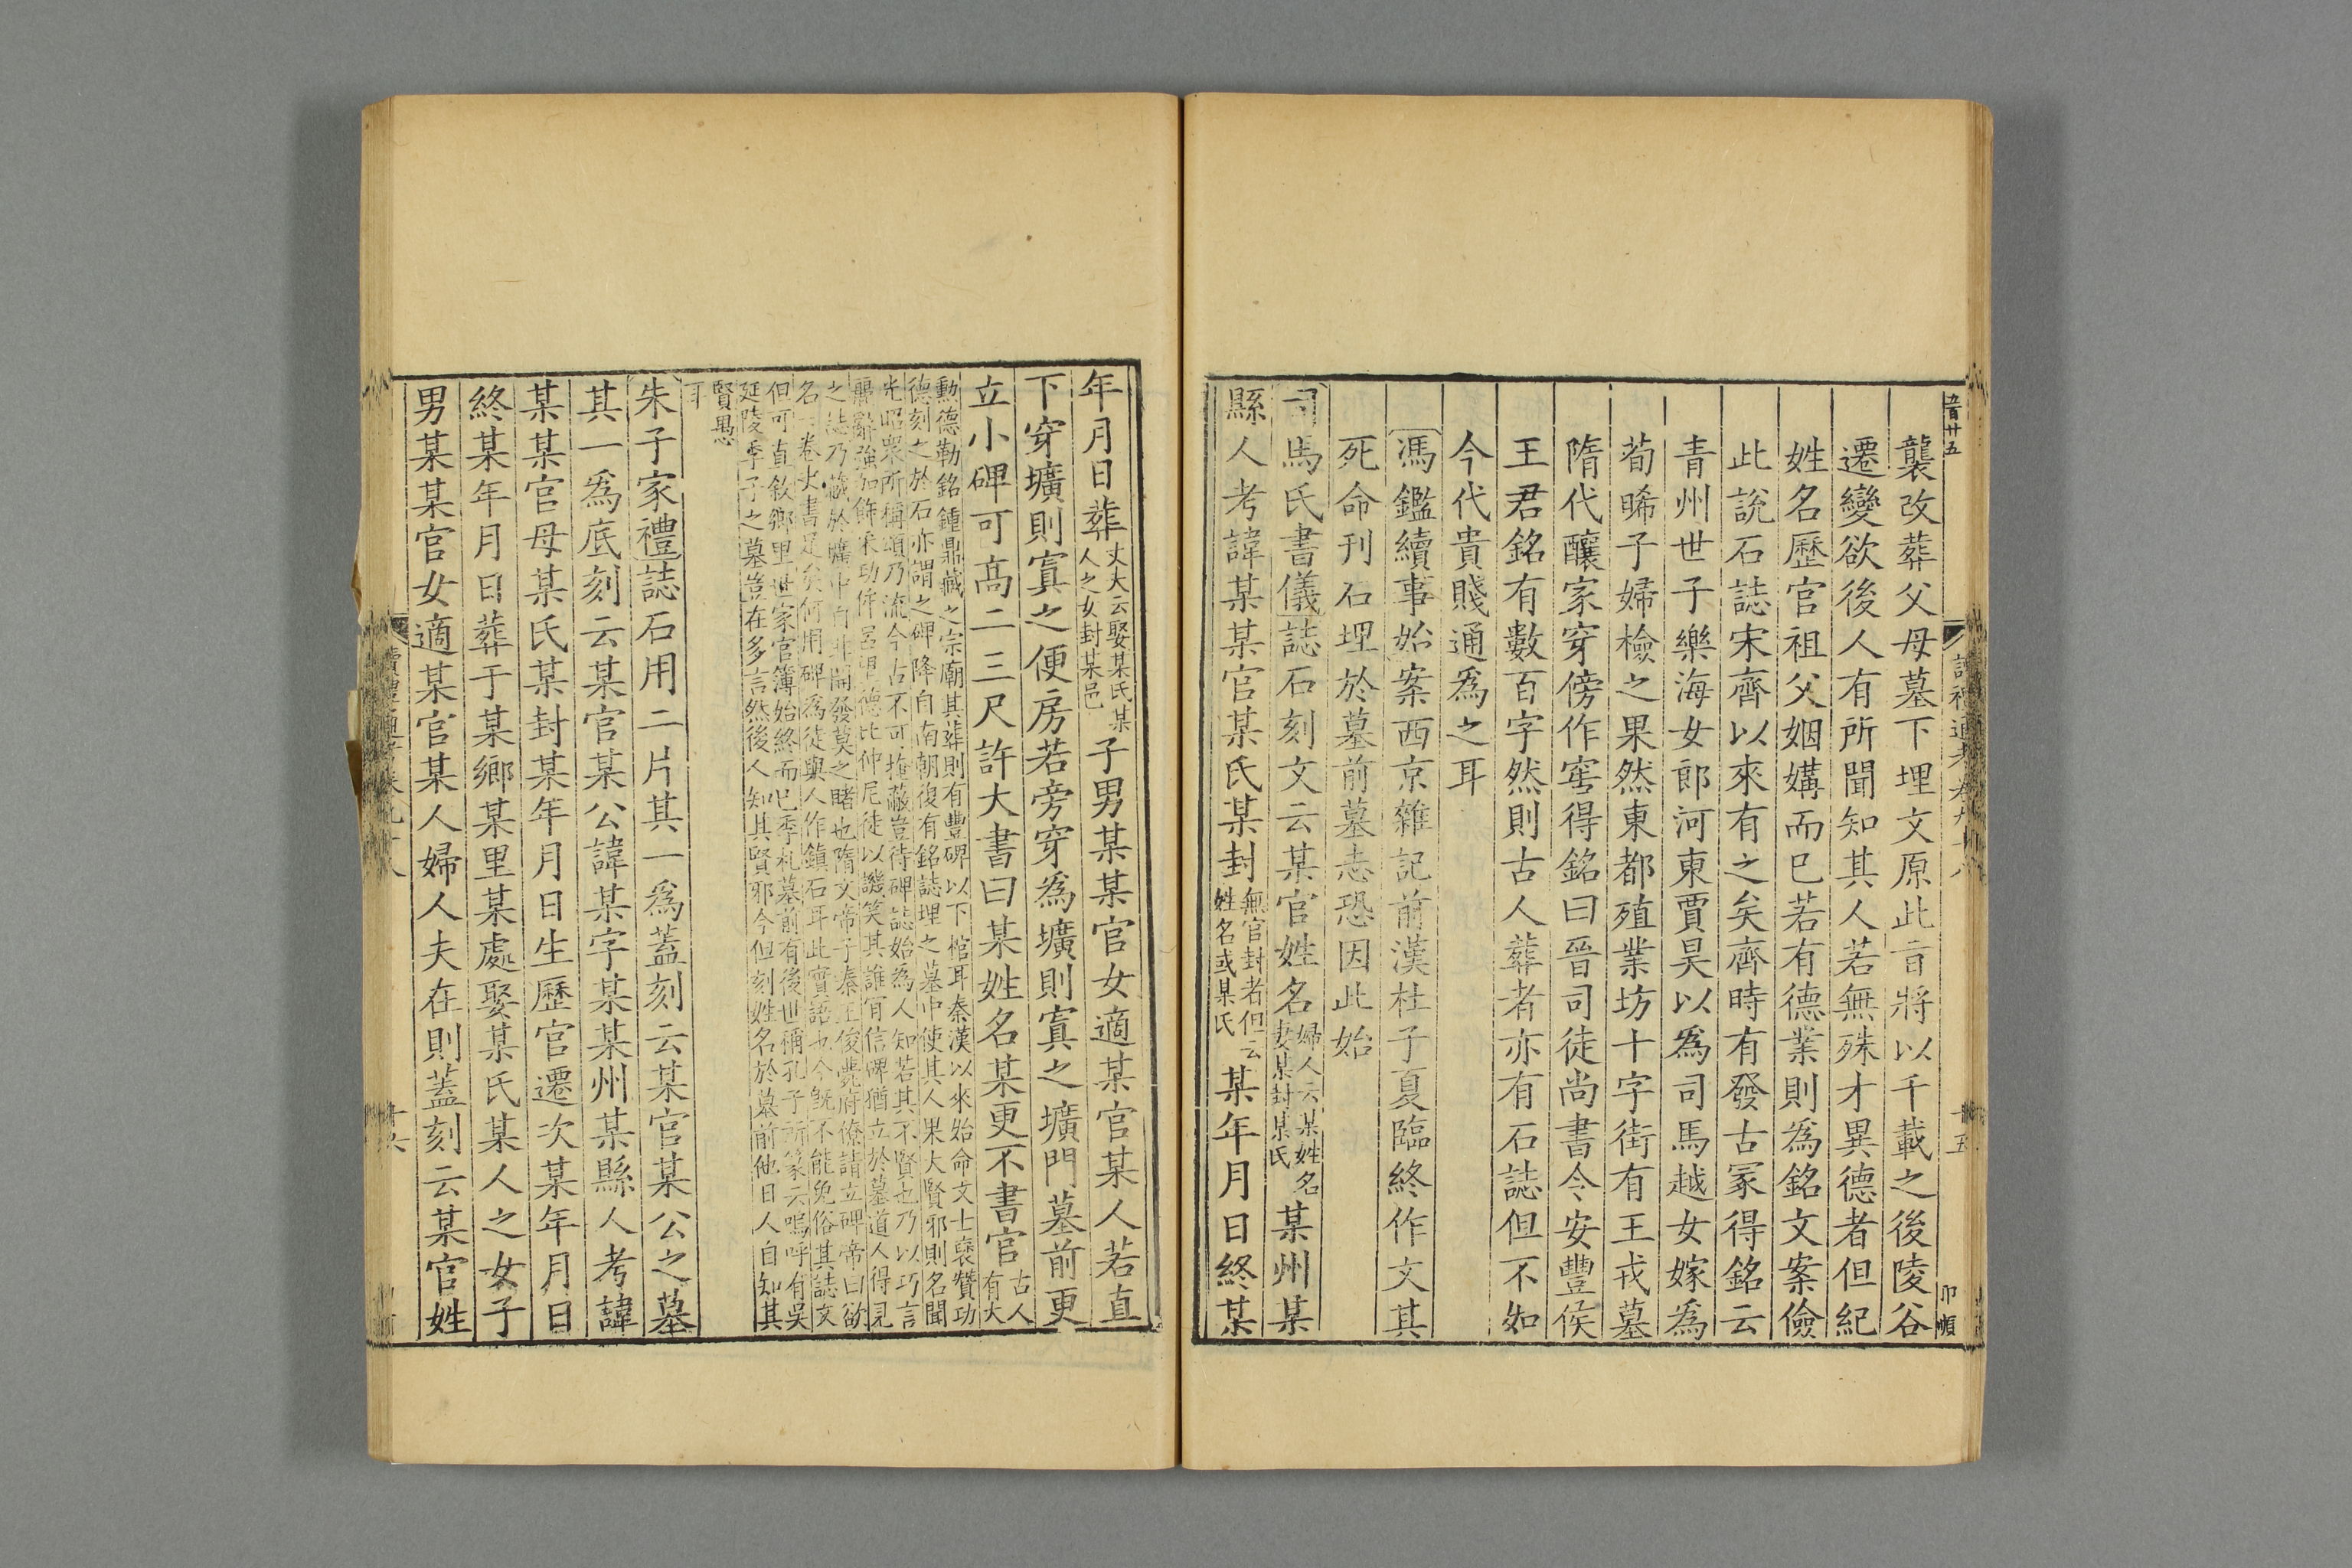 襲改葬父母墓下埋文原此旨將以千載之後陵谷
遷變欲後人有所聞知其人若無殊才異德者但紀
姓名歷官祖父姻媾而已若有德業則為銘文案儉
此說石誌宋齊以來有之矣齊時有發古冢得銘云
青州世子樂海女郎河東賈昊以為司馬越女嫁為
荀晞子婦檢之果然東都殖業坊十字街有王戎墓
隋代釀家穿傍作窖得銘曰晉司徒尚書令安豐侯
王君銘有數百字然則古人葬者亦有石誌但不如
今代貴賤通為之耳
馮鑑續事始案西京雜記前漢杜子夏臨終作文其
死命刊石埋於墓前墓志恐因此始
司馬氏書儀誌石刻文云某官姓名婦人云某姓名妻某封某氏某州某
縣人考諱某某官某氏某封無官封者但云姓名或某氏某年月日終某
年月日葬丈夫云娶某氏某人之女封某邑子男某某官女適某官某人若直
下穿壙則寘之便房若旁穿為壙則寘之壙門墓前更
立小碑可高二三尺許大書曰某姓名某更不書官古人有大
勳德勒銘鍾鼎藏之宗廟其葬則有豐碑以下棺耳秦漢以來始命文士襃贊功
德刻之於石亦謂之碑降自南朝復有銘誌埋之墓中使其人果大賢邪則名聞
昭衆所稱頌乃流今古不可掩蔽豈待碑誌始為人知若其不賢也乃以巧言
麗辭強加飾采功侔呂望德比仲尼徒以譏笑其誰肯信碑猶立於墓道人得見
之誌乃藏於壙中自非開發莫之睹也隋文帝子秦王俊薨府僚請立碑帝曰欲
名一卷史書足矣何用碑為徒與人作鎮石耳此實語也今既不能免俗其誌文
但可直敘鄉里世家官簿始終而已季札墓前有後世稱孔子所篆云嗚呼有吳
延陵季子之墓豈在多言然後人知其賢邪今但刻姓名於墓前他日人自知其
賢愚
耳
朱子家禮誌石用二片其一為蓋刻云某官某公之墓
其一為底刻云某官某公諱某字某某州某縣人考諱
某某官母某氏某封某年月日生歷官遷次某年月日
終某年月日葬于某鄉某里某處娶某氏某人之女子
男某某官女適某官某人婦人夫在則蓋刻云某官姓